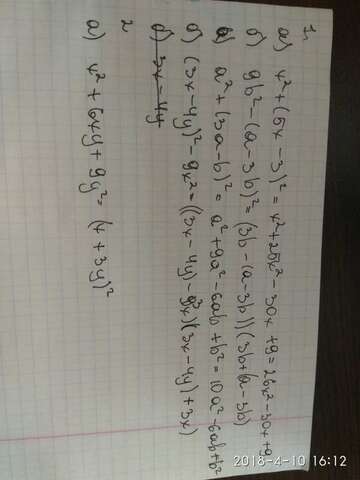 1.
а) x² + (5x - 3)² = x² + 25x² - 30x + 9 = 26x² - 30x + 9
б) 9b² - (a - 3b)² = (3b - (a - 3b))(3b + (a - 3b)
в) a² + (3a - b)² = a² + 9a² - 6ab + b² = 10a² - 6ab + b²
б) (3x - 4y)² - 9x² = ((3x - 4y) - 3x)(3x - 4y) + 3x)
б) 3x - 4y
2
а) x² + 6xy + 9y² = (x + 3y)²
2018-4-10 16:12